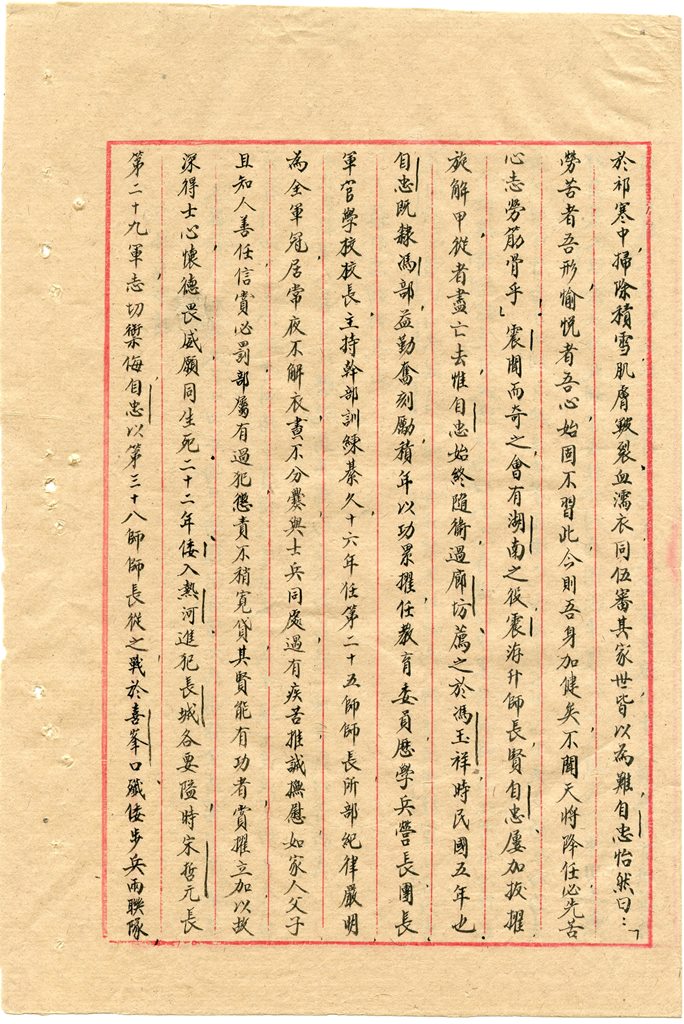 於祁寒中掃除積雪肌膚皸裂血濡衣同伍審其家世皆以為難自忠怡然曰：「
勞苦者吾形愉悅者吾心始固不習此今則吾身加健矣不聞天將降任必先苦
心志勞筋骨乎」震聞而奇之會有湖南之役震洊升師長賢自忠屢加拔擢
旋解甲從者盡亡去惟自忠始終隨衛過廊坊薦之於馮玉祥時民國五年也
自忠既隸馮部益勤奮刻勵積年以功累擢任教育委員歷學兵營長團長
軍官學校校長主持幹部訓練綦久十六年任第二十五師師長所部紀律嚴明
為全軍冠居常夜不解衣晝不分爨與士兵同處遇有疾苦推誠撫慰如家人父子
且知人善任信賞必罰部屬有過犯懲責不稍寬貸其賢能有功者賞擢立加以故
深得士心懷德畏威願同生死二十二年倭入熱河進犯長城各要隘時宋哲元長
第二十九軍志切禦侮自忠以第三十八師師長從之戰於喜峯口殲倭步兵兩聯隊